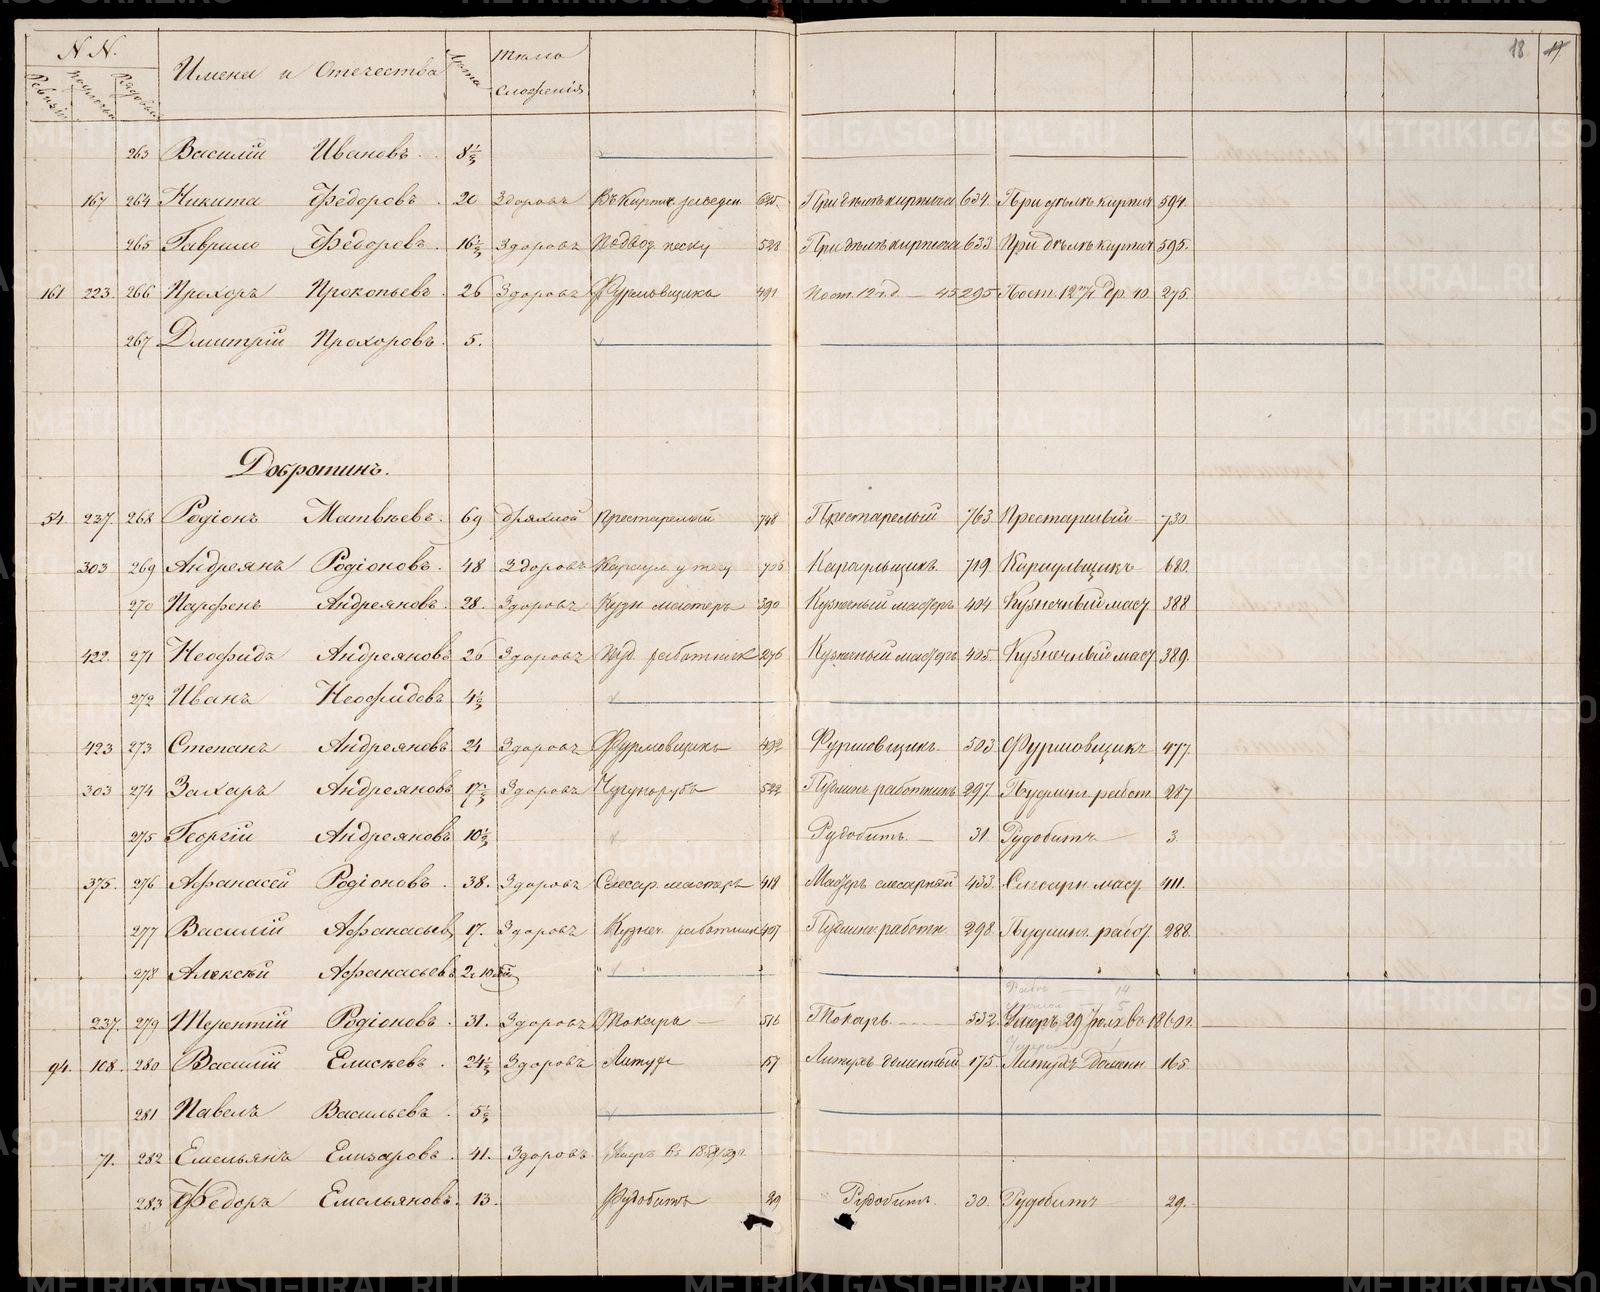 N N.
Ревизіи
Рядовыя
Имена и Отечества
Лѣта
тѣло
сложенія
18 17
263 Василій Ивановъ. 8½
167 264 Никита Ѳедоровъ. 20 Здоровъ 625. При дѣлѣ кирпича 634. При дѣлѣ кирпич 594.
265 Гаврило Ѳедоровъ. 16½ Здоровъ Подвод. песку 522 При дѣлѣ кирпича 633 При дѣлѣ кирпич 595.
161 223 266 Прохоръ Прокопьевъ. 26 Здоровъ Фурмовщикъ 491 Пост. 12 г.д. — 45 295 Пост. 12 275.
267 Дмитрій Прохоровъ. 5.
Добротинъ.
54. 237. 268 Родіонъ Матвѣевъ. 69 дряхлой Престарелый 748 Престарелый 763 Престарелый 730
303 269 Андреянъ Родіоновъ. 48 Здоровъ Караул. у 706 Караульщикъ. 719 Караульщикъ 680.
270 Парфенъ Андреяновъ. 28. Здоровъ Кузн. мастеръ 390 Кузнечный мастеръ 404 Кузнечный маст 388
422. 271 Неофидъ Андреяновъ 26 Здоровъ работник 276 Кузнечный мастеръ 405. Кузнечный маст 389.
272 Иванъ Неофидовъ 4½
423 273 Степанъ Андреяновъ 21 Здоровъ Фурмовщикъ 492 Фурмовщикъ. 503 Фурмовщикъ 477.
303 274 Захаръ Андреяновъ 17½ Здоровъ Чугунорубъ 522 Пудлинг. работникъ 297. Пудлинг. работ. 287
275 Георгій Андреяновъ 10½ Рудобитъ — 31. Рудобитъ 3.
375. 276 Афанасей Родіоновъ. 38. Здоровъ Слесар. мастеръ 418 Мастеръ слесарный 433. Слесарн. маст. 411.
277 Василій Афанасьев 17. Здоровъ Кузнеч. работник 407 Пудлинг. работн. 298. Пудлинг. работ. 288.
278 Алексѣй Афанасьевъ 2. 10
237. 279 Терентій Родіоновъ. 31. Здоровъ Токарь 516 Токарь. 532. Умеръ 29 Іюля 1860 г.
94. 108. 280 Василій Елисѣевъ. 24½ Здоровъ Литухъ 157 Литухъ доменный 175. Литухъ Доменн 165.
281 Павелъ Васильевъ. 5½
71. 282 Емельянъ Елизаровъ. 41. Здоровъ. Умеръ
283 Ѳедоръ Емельяновъ. 13. Рудобитъ 29 Рудобитъ. 30. Рудобитъ 29.
METRIKI.GASO-URAL.RU